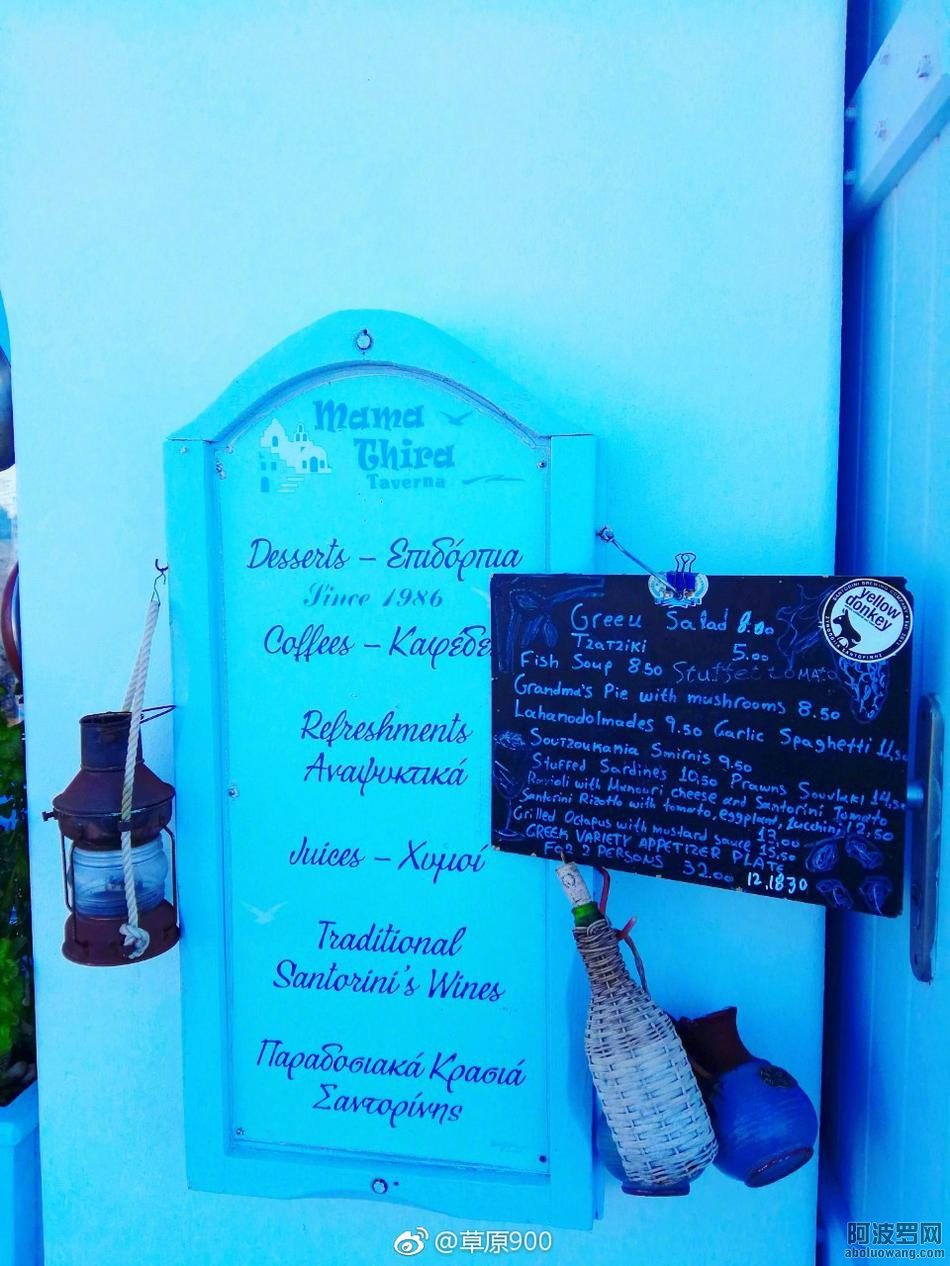 Mama
Thira
Taverna
Desserts – Επιδόρπια
Since 1986
Coffees – Καφέδε
Refreshments
Αναψυκτικά
Juices – Χυμοί
Traditional
Santorini's Wines
Παραδοσιακά Κρασιά
Σαντορίνης
Greek Salad 8.00
TZATZIKI 5.00
Fish Soup 8.50 Stuffed TOMATO
Grandma's Pie with mushrooms 8.50
Lahanodolmades 9.50 Garlic Spaghetti 11,50
Soutzoukakia Smirnis 9.50
Stuffed Sardines 10.50 Prawns Souvlaki 14,50
Ravioli with Manouri cheese and Santorini Tomato
Santorini Rizotto with tomato, eggplant, zucchini 12.50
Grilled Octapus with mustard sauce 13.50
GREEK VARIETY APPETIZER PLATE
FOR 2 PERSONS 32.00 12.1830
SANTORINI BREWING COMPANY
yellow
donkey
@草原900
阿波罗网
aboluowang.com